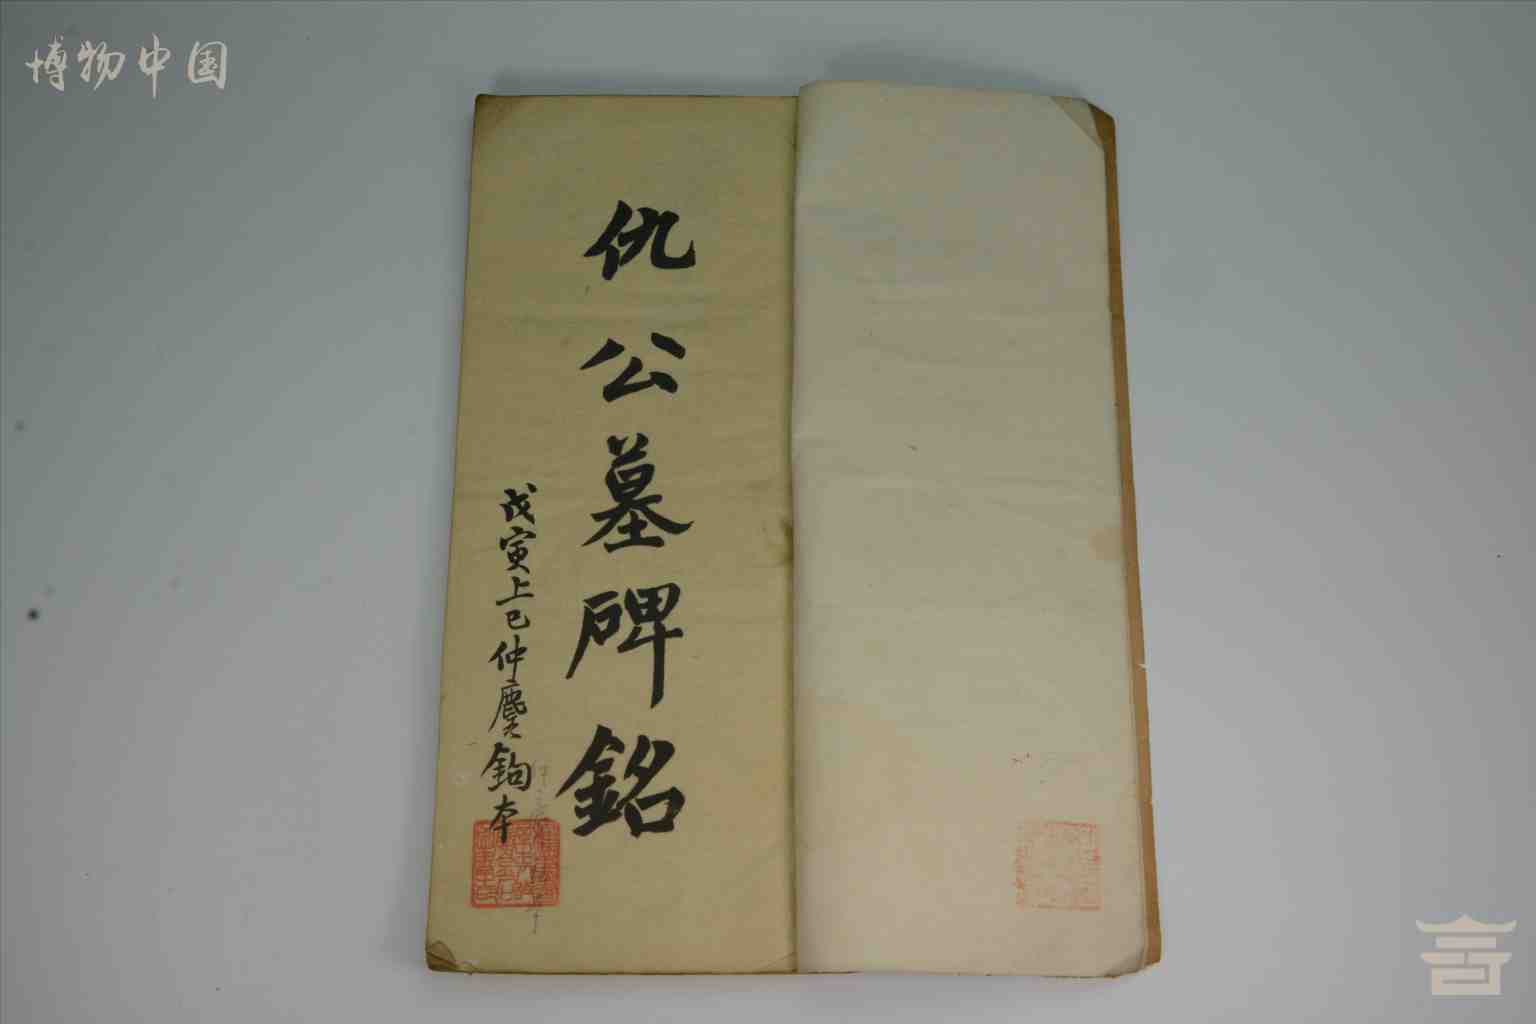 博物中国
仇公墓碑銘
戊寅上巳仲麐鉤本